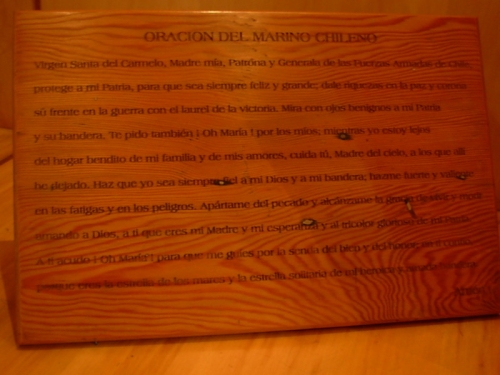 ORACION DEL MARINO CHILENO
Virgen Santa del Carmelo, Madre mía, Patrona y Generala de las Fuerzas Armadas de Chile,
protege a mi Patria, para que sea siempre feliz y grande; dale riquezas en la paz y corona
sú frente en la guerra con el laurel de la victoria. Mira con ojos benignos a mi Patria
y su bandera. Te pido también ¡ Oh María ! por los míos; mientras yo estoy lejos
del hogar bendito de mi familia y de mis amores, cuida tú, Madre del cielo, a los que allí
he dejado. Haz que yo sea siempre fiel a mi Dios y a mi bandera; hazme fuerte y
en las fatigas y en los peligros. Apártame del pecado y alcánzame la gracia de vivir y morir
amando a Dios, a ti que eres mi Madre y mi esperanza y al tricolor glorioso de mi Patria.
A ti acudo ¡ Oh María ! para que me guíes por la senda del bien y del honor,
porque eres la estrella de los mares y la estrella solitaria de mi